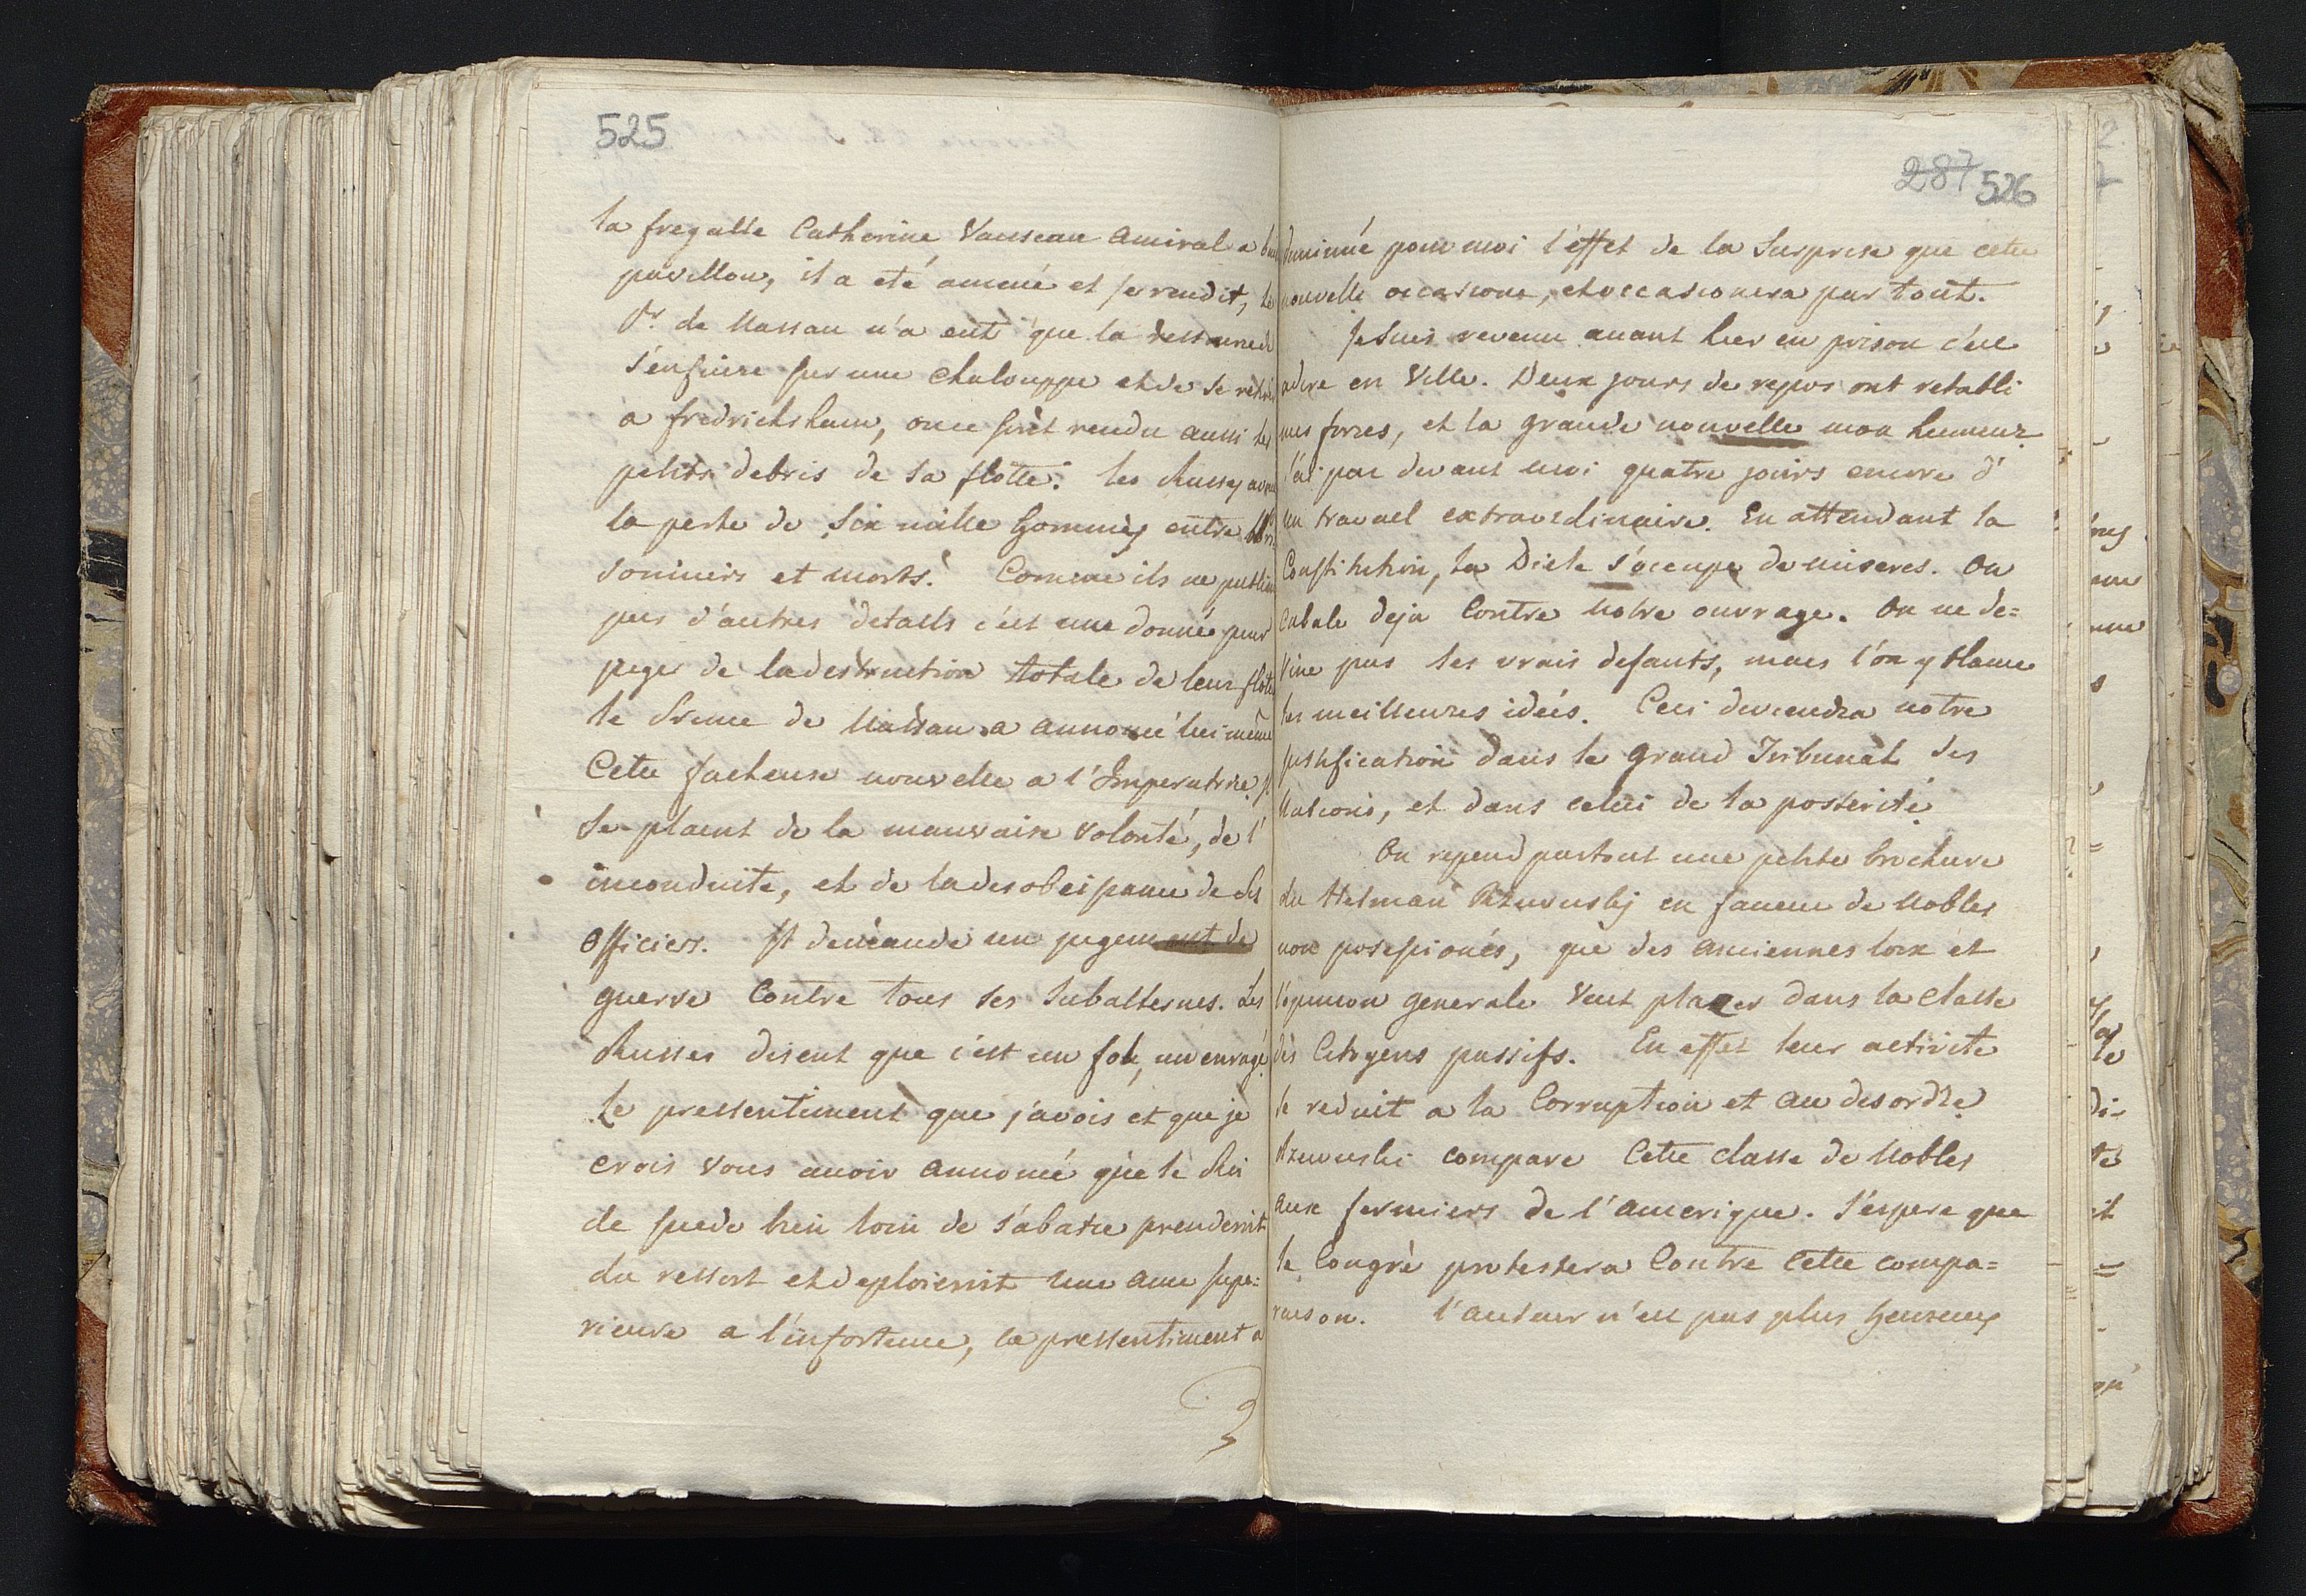 525
la fregatte Catherine Vaisseau Amiral a
pavillon, il a eté amené et se rendit, le
Pr. de Nassau n'a eut que la ressource de
s'enfuire sur une chalouppe et de se retirer
a fredrichsham, ou se sont rendu aussi les
petits debris de sa flotte. les Russes
la perte de six mille hommes entre
sonniers et morts. Comme ils ne publient
pas d'autres details c'est une donné pour
juger de la destruction totale de leur flote
le Prince de Nassau a annoncé lui même
Cette facheuse nouvelle a l'Imperatrice, il
se plaint de la mauvaise volonté, de l'
inconduite, et de la desobeissance de ses
Officiers. Il demande un jugement de
guerre Contre tous ses Subalternes. Les
Russes disent que c'est un fou, un enragé.
Le pressentiment que j'avois et que je
crois vous avoir annoncé que le Roi
de suede bien loin de s'abatre prenderoit
du ressort et deploieroit une ame supe=
rieure a l'infortune, ce pressentiment a
287 526
diminué pour moi l'effet de la Surprise que cette
nouvelle occasiona, et occasionera par tout.
Je suis revenu avant hier en prison c'est
adire en Ville. Deux jours de repos ont retabli
mes forces, et la grande nouvelle mon humeur.
J'ai par devant moi quatre jours encore d'
un travail extraordinaire. En attendant la
Constitution, la Diete s'occupe de miseres. On
cabale deja Contre Notre ouvrage. On ne de=
vine pas les vrais defauts, mais l'on y blame
les meilleures idées. Ceci deviendra notre
justification dans le grand Tribunal des
Nations, et dans celui de la posterité.
On repend partout une petite brochure
du Hetman Rzewusky en faveur de Nobles
non possessionés, que des anciennes loix et
l'opinion generale veut placer dans la classe
des Citoyens passifs. En effet leur activite
se reduit a la Corruption et au desordre.
Rzewuski compare Cette classe de Nobles
aux fermiers de l'amerique. J'espere que
le Congrè protestera Contre cette compa=
raison. l'auteur n'est pas plus heureux